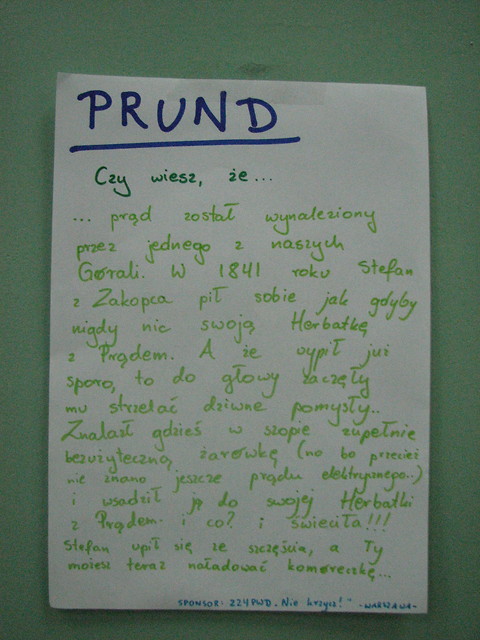 PRUND
Czy wiesz, że...
... prąd został wynaleziony
przez jednego z naszych
Górali. W 1841 roku Stefan
z Zakopca pił sobie jak gdyby
nigdy nic swoją Herbatkę
z Prądem. A że wypił już
sporo, to do głowy zaczęły
mu strzelać dziwne pomysły..
Znalazł gdzieś w szopie zupełnie
bezużyteczną żarówkę (no bo przecież
nie znano jeszcze prądu elektrycznego..)
i wsadził ją do swojej Herbatki
z Prądem. i co? i świeciła!!!
Stefan upił się ze szczęścia, a Ty
możesz teraz naładować komóreczkę...
SPONSOR: 224PWD. "Nie krzycz!" -WARSZAWA-